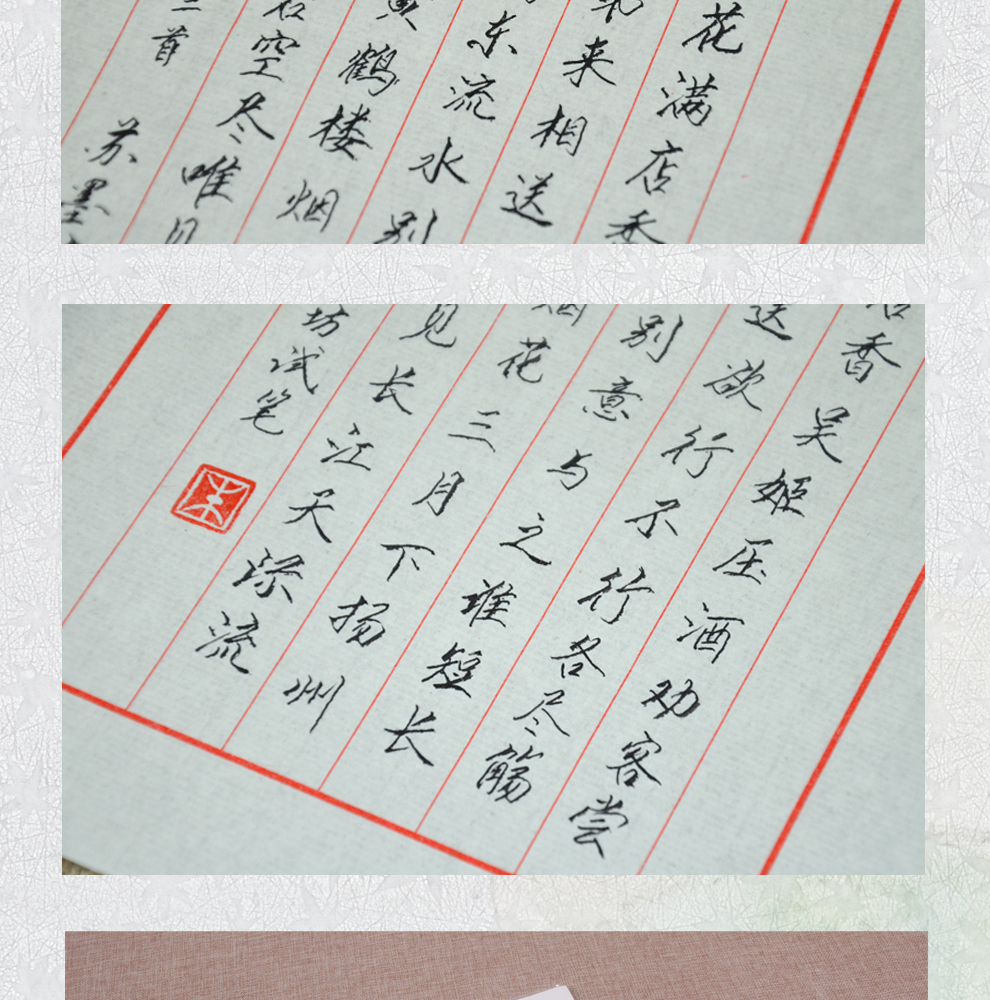 花满店香
来相送
东流水别
黄鹤楼烟
空尽唯见
首苏墨
香吴姬压酒劝客尝
送欲行不行各尽觞
别意与之谁短长
烟花三月下扬州
见长江天际流
坊试笔